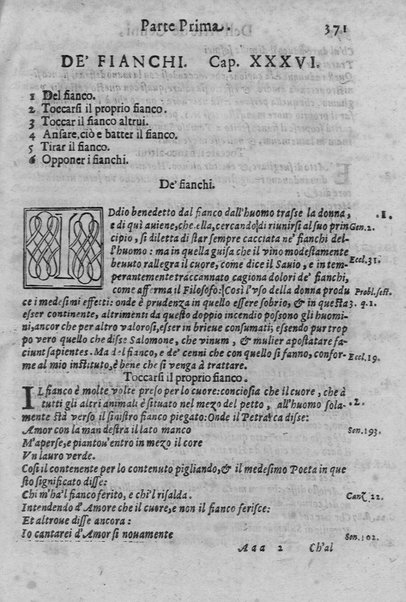 Parte Prima. 371
DE' FIANCHI. Cap. XXXVI.
1 Del fianco.
2 Toccarsi il proprio fianco.
3 Toccar il fianco altrui.
4 Ansare, ciò e batter il fianco.
5 Tirar il fianco.
6 Opponer i fianchi.
De' fianchi.
IDdio benedetto dal fianco dall'huomo trasse la donna, 1.
e di quì auiene, che, ella, cercando di riunirsi al suo prin Gen. 2.
cipio, si diletta di star sempre cacciata ne' fianchi del-
l'huomo: ma in quella guisa che il vino modestamente
beuuto rallegra il cuore, come dice il Sauio, e in tem- Eccl. 31.
perantemente traccannato cagiona dolori de' fianchi,
come afferma il Filosofo: Così l'vso della donna produ Probl. sest.
ce i medesimi effetti: onde è prudenza in quello essere sobrio, & in questa 3. q. 2.
esser continente, altrimenti da questo doppio incendio possono gli huomi
ni, ancor che per altro valorosi, esser in brieue consumati; essendo pur trop
po vero quello che disse Salomone, che vinum, & mulier apostatare fa-
ciunt sapientes. Ma del fianco, e de' cenni che con quello si fanno, confor- Eccl. 19.
me al mio instituto, è bene che si venga à trattare.
Toccarsi il proprio fianco.
IL fianco è molte volte preso per lo cuore: conciosia che il cuore, che à 2.
tutti gli altri animali è situato nel mezo del petto, all'huomo sola-
mente stà verso il sinistro fianco piegato: Onde il Petrarca disse:
Amor con la man destra il lato manco Son. 193.
M'aperse, e piantou'entro in mezo il core
Vn lauro verde.
Così il contenente per lo contenuto pigliando, & il medesimo Poeta in que
sto significato disse:
Chi m'ha 'l fianco ferito, e chi 'l risalda. Canz. 22.
Intendendo d'Amore che il cuore, e non il fianco ferisce:
Et altroue disse ancora:
Io cantarei d'Amor sì nouamente Son. 102.
Aaa 2 Ch'al